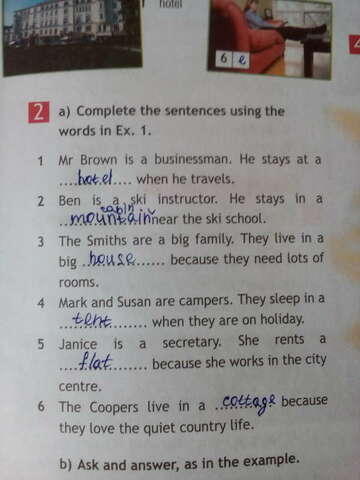 f hotel
6 e
2 a) Complete the sentences using the
words in Ex. 1.
1 Mr Brown is a businessman. He stays at a
....hotel.... when he travels.
2 Ben is a ski instructor. He stays in a
cabin
..mountain near the ski school.
3 The Smiths are a big family. They live in a
big ..house....... because they need lots of
rooms.
4 Mark and Susan are campers. They sleep in a
...tent........ when they are on holiday.
5 Janice is a secretary. She rents a
....flat........ because she works in the city
centre.
6 The Coopers live in a ..cottage.. because
they love the quiet country life.
b) Ask and answer, as in the example.